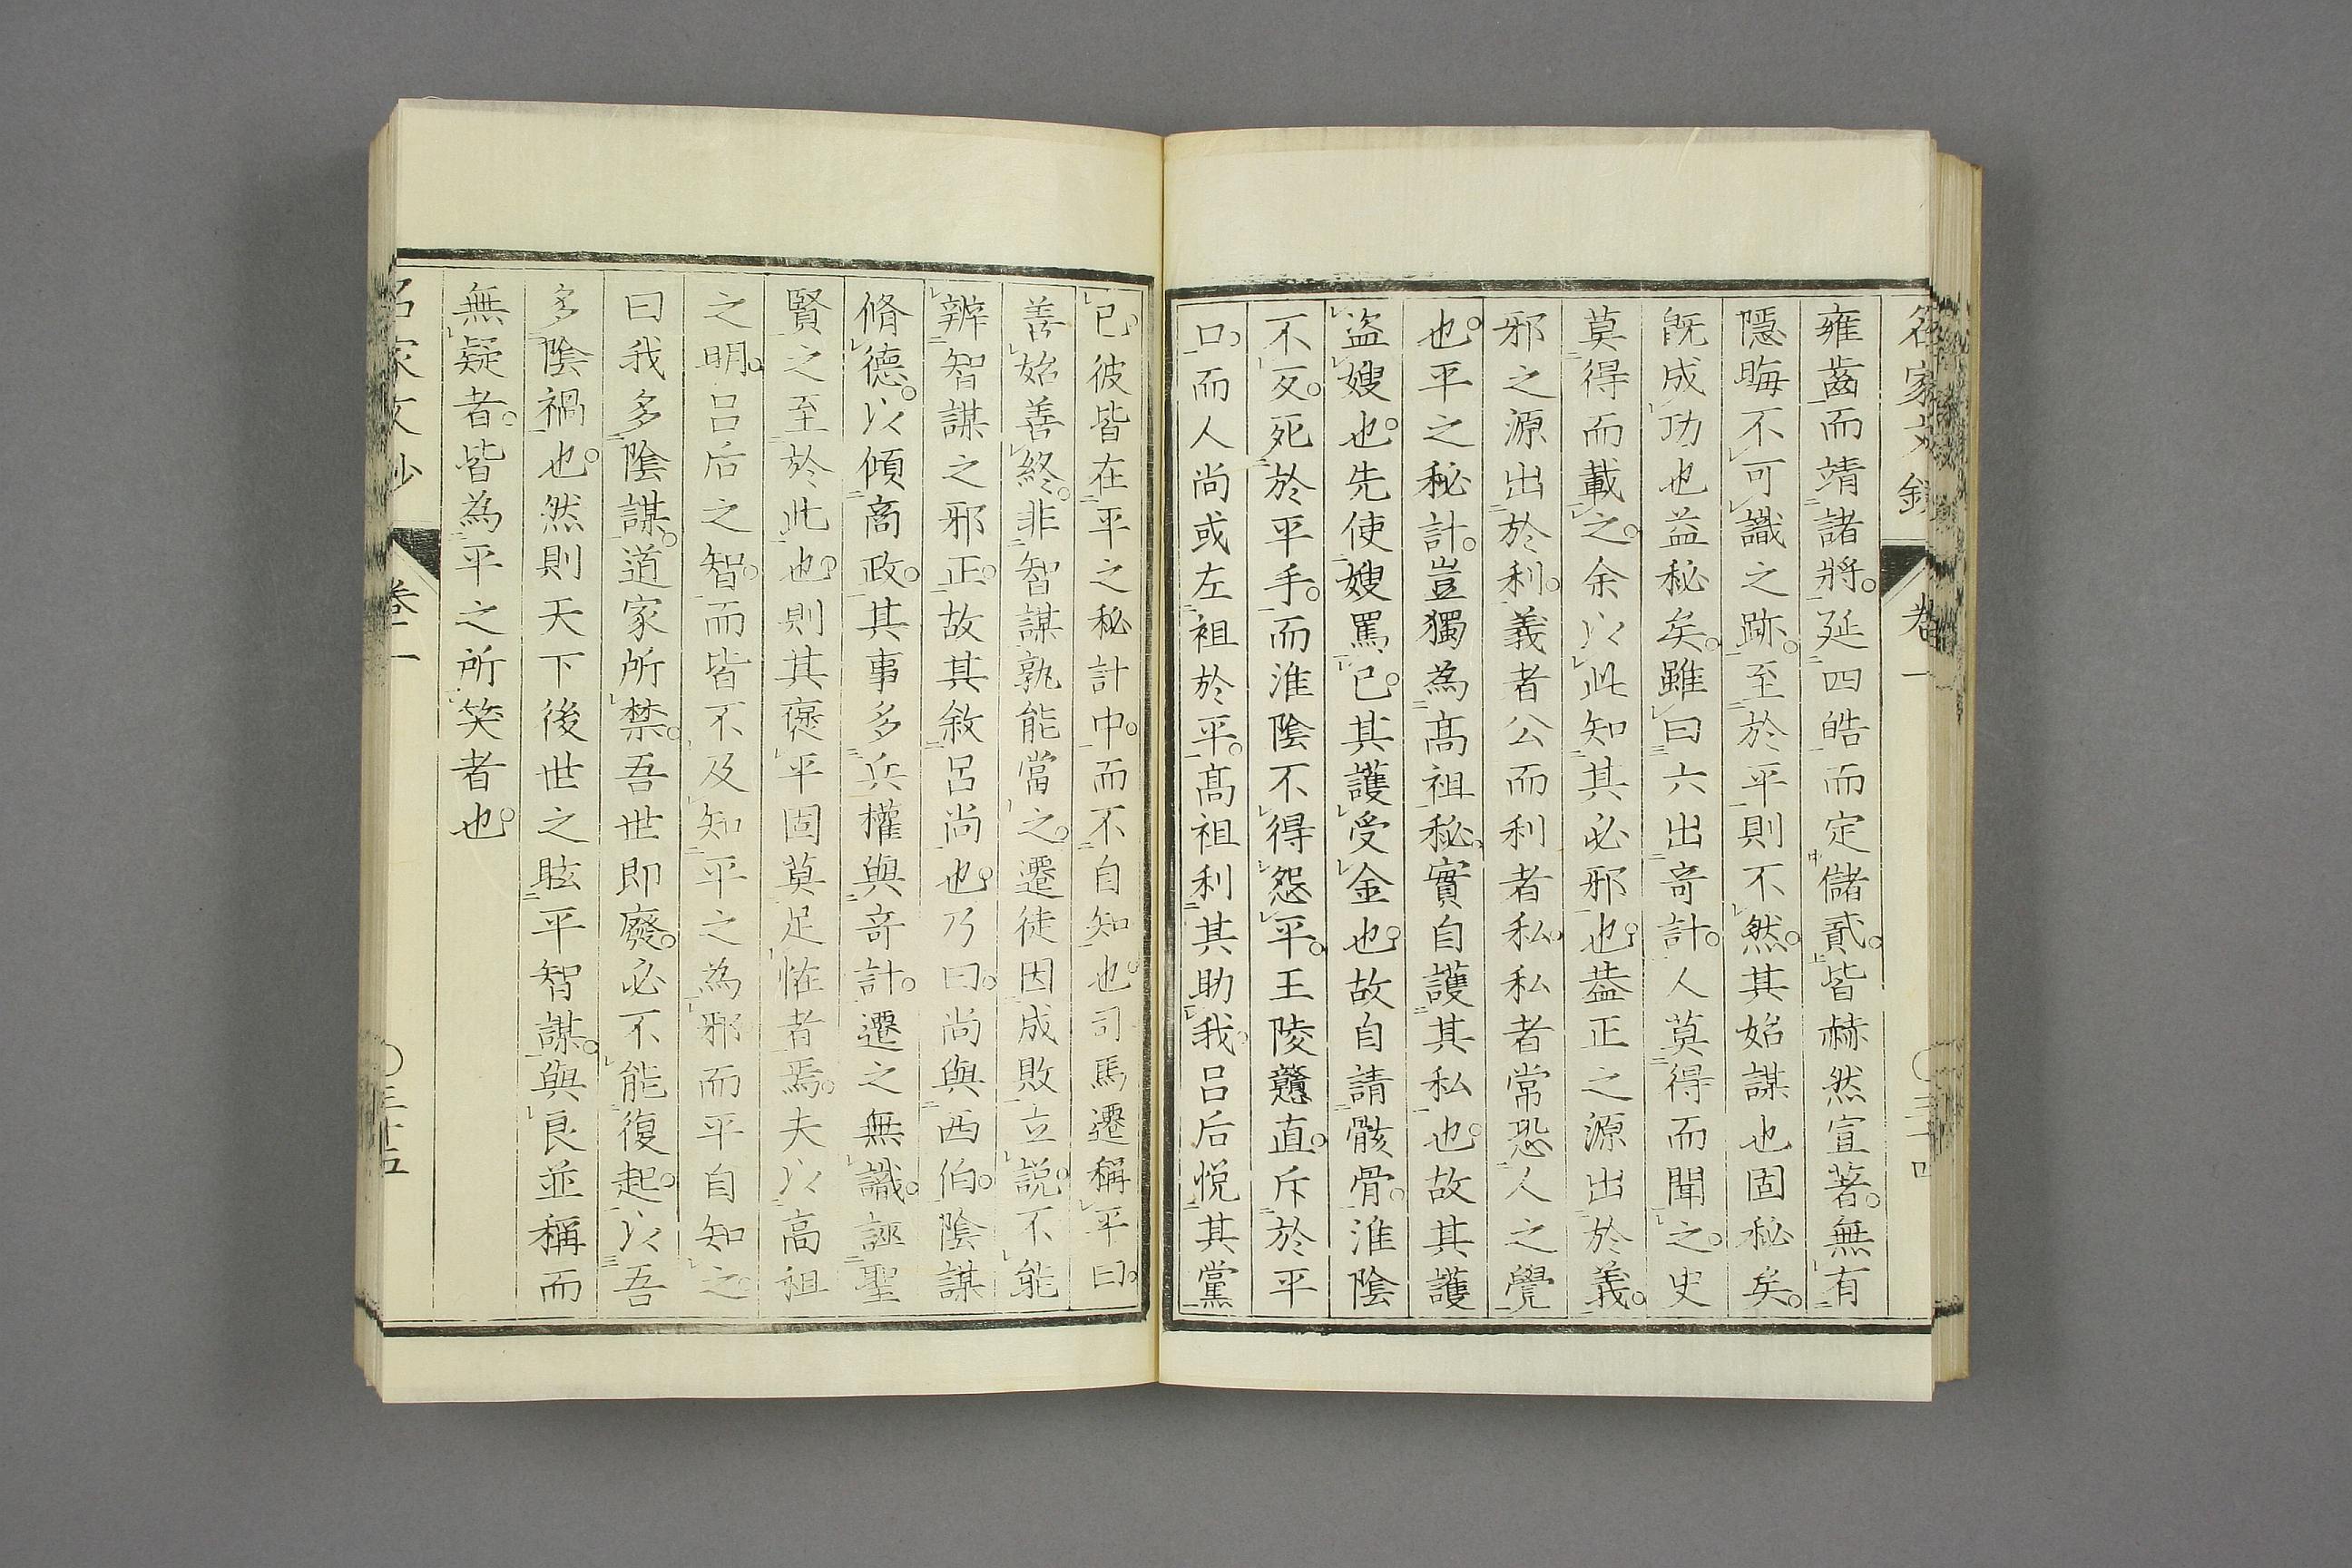 名家文鈔 卷一 〇三十四
雍齒而靖諸將。延四皓而定儲貳。皆赫然宣著。無有
隱晦不可識之跡。至於平則不然。其始謀也固秘矣。
旣成功也益秘矣。雖曰六出奇計。人莫得而聞之。史
莫得而載之。余以此知其必邪也。葢正之源出於義。
邪之源出於利。義者公而利者私。私者常恐人之覺
也。平之秘計。豈獨為高祖秘。實自護其私也。故其護
盜嫂也。先使嫂罵己。其護受金也。故自請骸骨。淮陰
不反。死於平手。而淮陰不得怨平。王陵戇直。斥於平
口。而人尚或左袒於平。高祖利其助我。呂后悅其黨
己。彼皆在平之秘計中。而不自知也。司馬遷稱平曰。
善始善終。非智謀孰能當之。遷徒因成敗立說。不能
辨智謀之邪正。故其敘呂尚也。乃曰。尚與西伯。陰謀
脩德。以傾商政。其事多兵權與奇計。遷之無識。誣聖
賢之至於此也。則其褒平固莫足怪者焉。夫以高祖
之明。呂后之智。而皆不及知平之為邪。而平自知之。
曰我多陰謀。道家所禁。吾世即廢。必不能復起。以吾
多陰禍也。然則天下後世之眩平智謀。與良並稱而
無疑者。皆為平之所笑者也。
名家文鈔 卷一 〇三十五